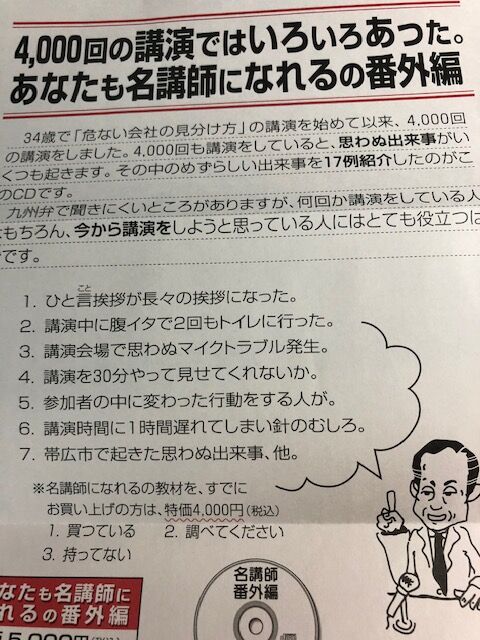 4,000回の講演ではいろいろあった。
あなたも名講師になれるの番外編
34歳で「危ない会社の見分け方」の講演を始めて以来、4,000回
の講演をしました。4,000回も講演をしていると、思わぬ出来事がい
くつも起きます。その中のめずらしい出来事を17例紹介したのがこ
のCDです。
九州弁で聞きにくいところがありますが、何回か講演をしている人
はもちろん、今から講演をしようと思っている人にはとても役立つは
ずです。
こと
1. ひと言挨拶が長々の挨拶になった。
2. 講演中に腹イタで2回もトイレに行った。
3. 講演会場で思わぬマイクトラブル発生。
4. 講演を30分やって見せてくれないか。
5. 参加者の中に変わった行動をする人が。
6. 講演時間に1時間遅れてしまい針のむしろ。
7. 帯広市で起きた思わぬ出来事、他。
※名講師になれるの教材を、すでに
お買い上げの方は、特価4,000円(税込)
1. 買つている 2. 調べてください
3. 持ってない
なたも名講師に
れるの番外編
5,000円
名講師
番外編